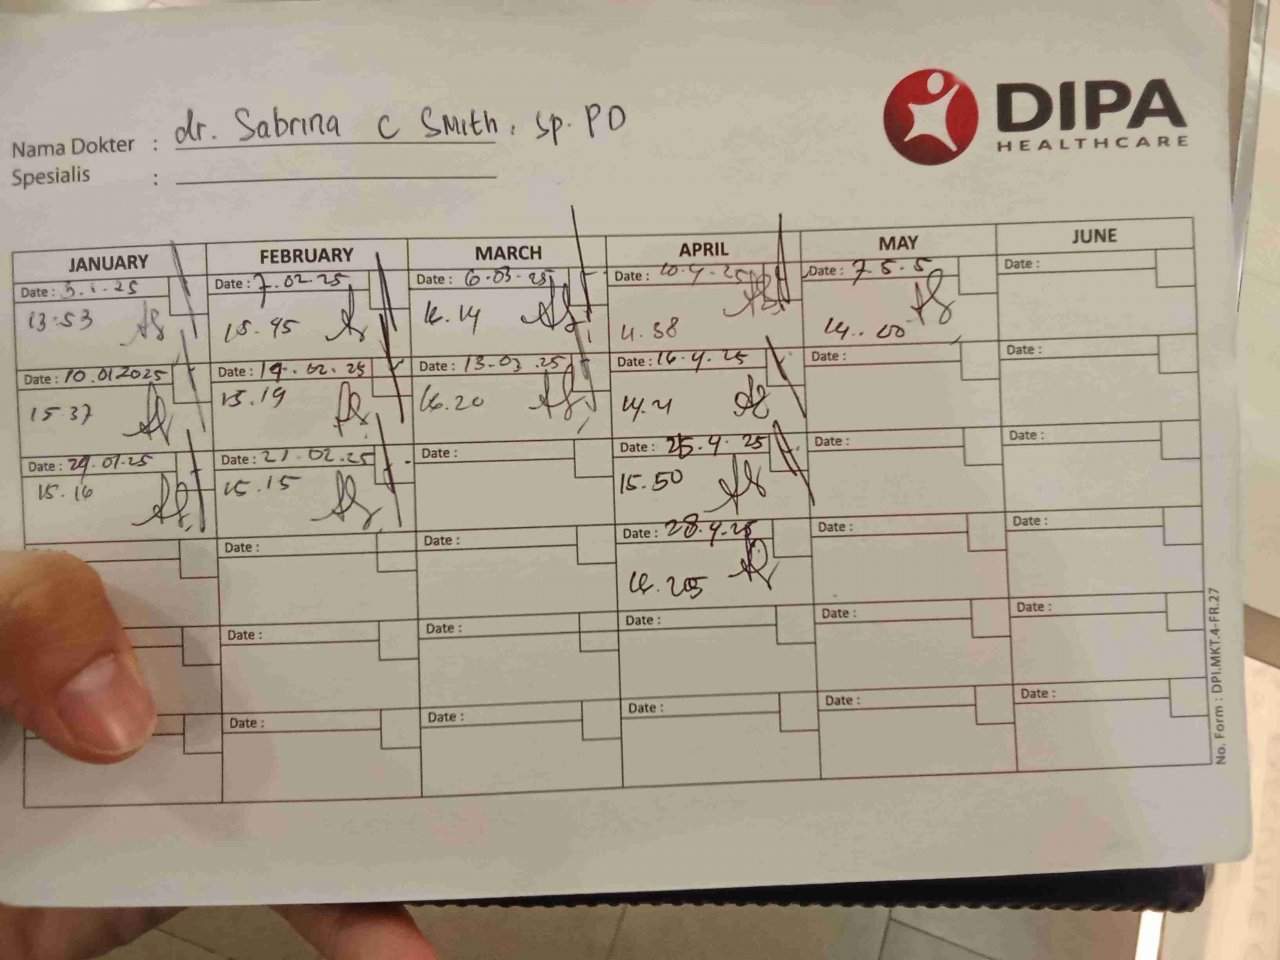 DIPA
HEALTHCARE
Nama Dokter : dr. Sabrina C Smith, sp. PD
Spesialis :
JANUARY FEBRUARY MARCH APRIL MAY JUNE
Date : 3.1.25 Date : 7.02.25 Date : 6.03.25 Date : 10.4.25 Date : 7.5.5 Date :
13.53 15.45 16.14 14..00
Date : 10.012025 Date : 14.02.25 Date : 13.03.25 Date : 16.4.25 Date : Date :
15 37 15.19 16.20
Date : 24.01.25 Date : 21.02.25 Date : Date : 25.4.25 Date : Date :
15.16 15.15 15.50
Date : Date : Date : 28.4.25 Date : Date :
Date : Date : Date : Date : Date :
Date : Date : Date : Date : Date :
No. Form : DPI.MKT.4-FR.27